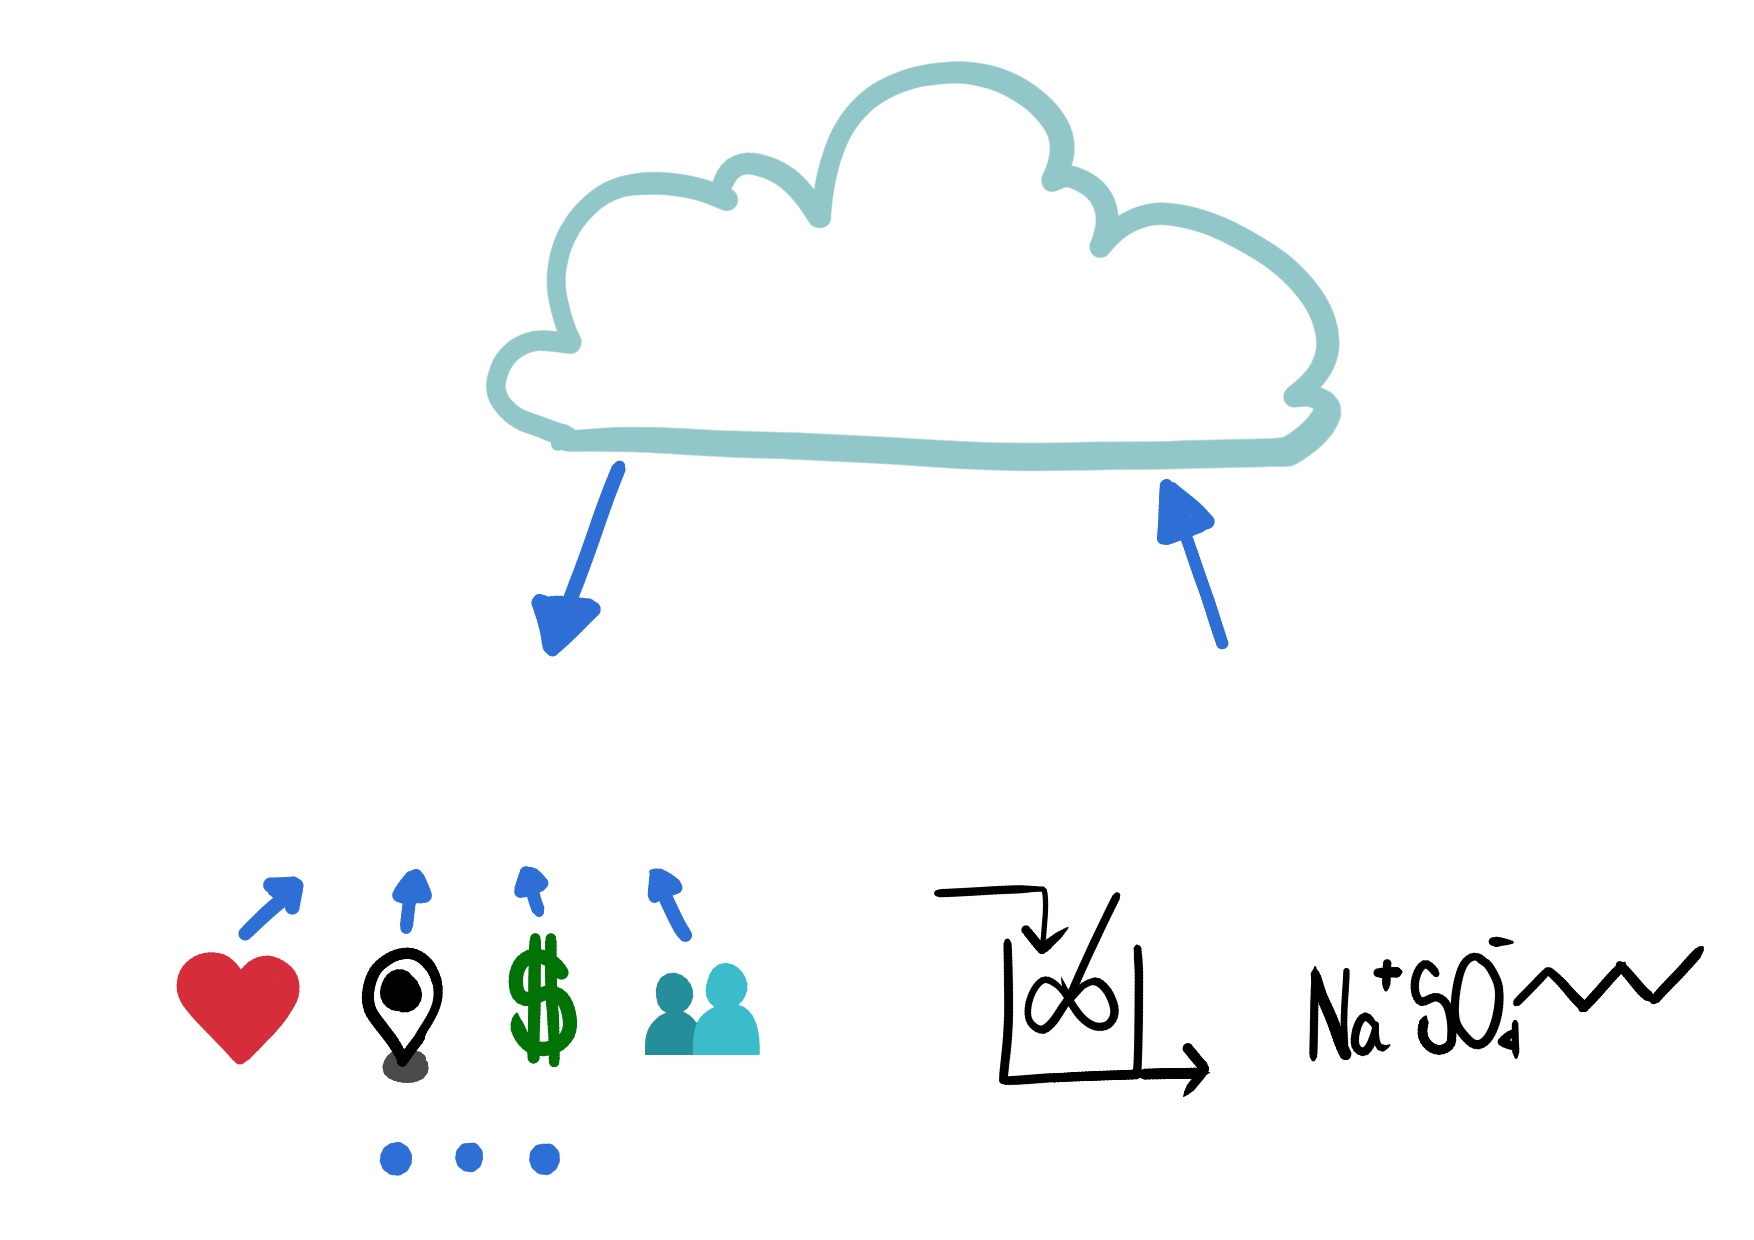 $
Na⁺SO₄⁻